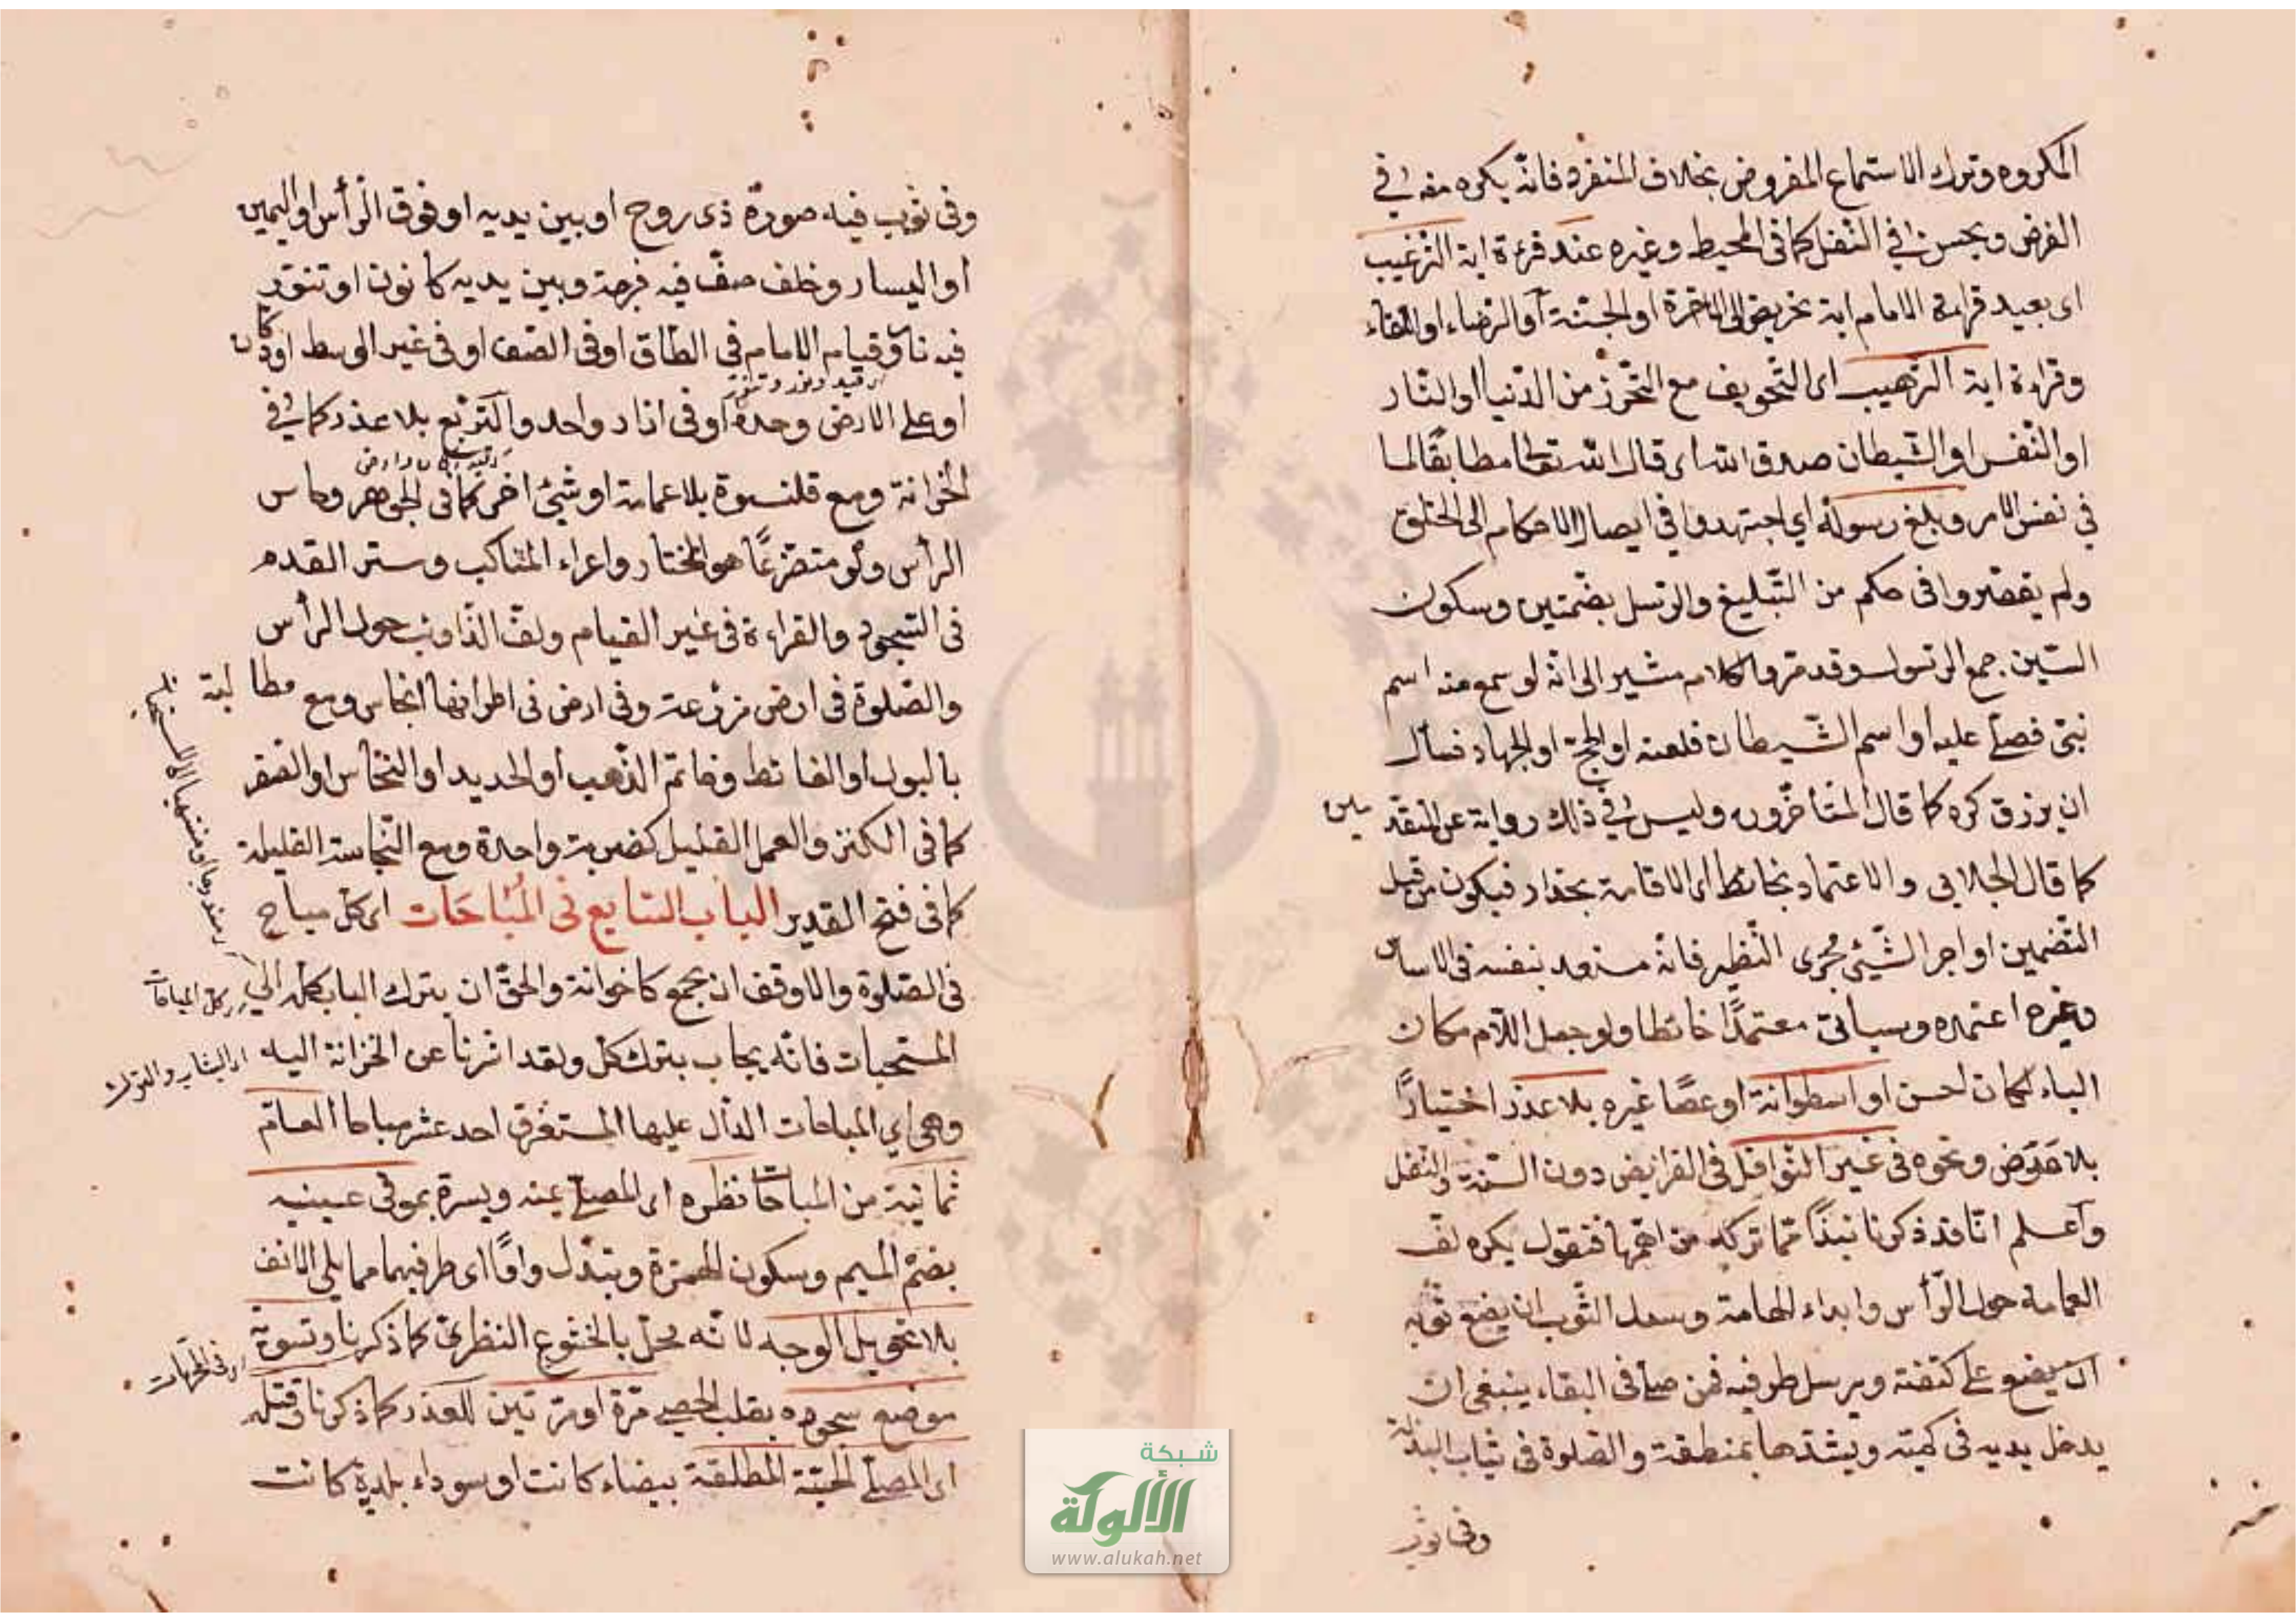 المكروه وترك الاستماع المفروض بخلاف المنفرد فانه يكره منه في
الفرض ويحسن في النفل كما في المحيط وغيره عند قرءة اية الترغيب
اى بعيد قراءة الامام اية تحريض الى الاخرة او الجنة او الرضاء او اللقاء
وقراءة اية الترهيب اى التخويف مع التحرز من الدنيا او النار
او النفس او الشيطان صدق الله اى قال الله تعالى مطابقا لما
في نفس الامر وبلغ رسوله اي اجتهدوا في ايصال الاحكام الى الخلق
ولم يقصروا في حكم من التبليغ والرسل بضمتين وسكون
السين جمع الرسول وقد مر والكلام مشير الى انه لو سمع منه اسم
نبى فصلى عليه او اسم الشيطان فلعنه او الحج او الجهاد فسأل
ان يرزق كره كما قال المتأخرون وليس في ذلك رواية عن المتقدمين
كما قال الجلابي والاعتماد بحائط اى الاقامة بجدار فيكون من قبيل
التضمين او اجر الشيئ مجرى النظير فانه متعد بنفسه في الاساس
وغيره اعتمده وسيأتى معتمدا حائطا ولو جعل اللام مكان
الباء لكان احسن او اسطوانة او عصا غيره بلا عذر اختيارا
بلا مرض ونحوه في غير النوافل في الفرايض دون السنة والنفل
واعلم انا قد ذكرنا نبذا مما تركه من اهمها فنقول يكره لف
العمامة حول الرأس وابداء الهامة وسدل الثوب ان يضع ثوبه
اى يضع على كتفه ويرسل طرفيه فمن صلى في القباء ينبغى ان
يدخل يديه في كميه ويشدها بمنطقة والصلوة في ثياب البذلة
وفي ثوب
وفى ثوب فيه صورة ذى روح او بين يديه او فوق الرأس او اليمين
او اليسار وخلف صف فيه فرجة وبين يديه كانون او تنور
فيه نار وقيام الامام في الطاق او في الصف او في غير الوسط او دكان
او على الارض وحده او في ازار واحد والتربع بلا عذر كما في
الخزانة ومع قلنسوة بلا عمامة او شيئ اخر كما في الجواهر وحاسر
الرأس ولو متضرعا هو المختار واعراء المناكب وستر القدم
في السجود والقراءة في غير القيام ولف الذوائب حول الرأس
والصلوة في ارض مزرعة وفي ارض في اطرافها انجاس ومع مطالبة
بالبول او الغائط وخاتم الذهب او الحديد او النحاس او الصفر
كما في الكنز والعمل القليل كضربة واحدة ومع النجاسة القليلة
كما في فتح القدير الباب السابع في المباحات اى كل مباح
في الصلوة والاوفق ان يجمع كاخوانه والحق ان يترك الباب كله الى
المستحبات فانه يجاب بترك كل ولقد اشرنا عن الخزانة اليه
وهي اي المباحات الدال عليها المستغرق احد عشر مباحا العام
ثمانية من المباحات نظره اى المصلى يمنة ويسرة بموقى عينيه
بضم الميم وسكون الهمزة وتبدل واوا اى طرفيهما مما يلى الانف
بلا تحويل الوجه لانه مخل بالخشوع النظرى كما ذكرنا وتسوية
موضع سجوده بقلب الحصى مرة او مرتين للعذر كما ذكرنا وقتله
اى المصلى الحية المطلقة بيضاء كانت او سوداء بلدية كانت
شبكة
الألوكة
www.alukah.net